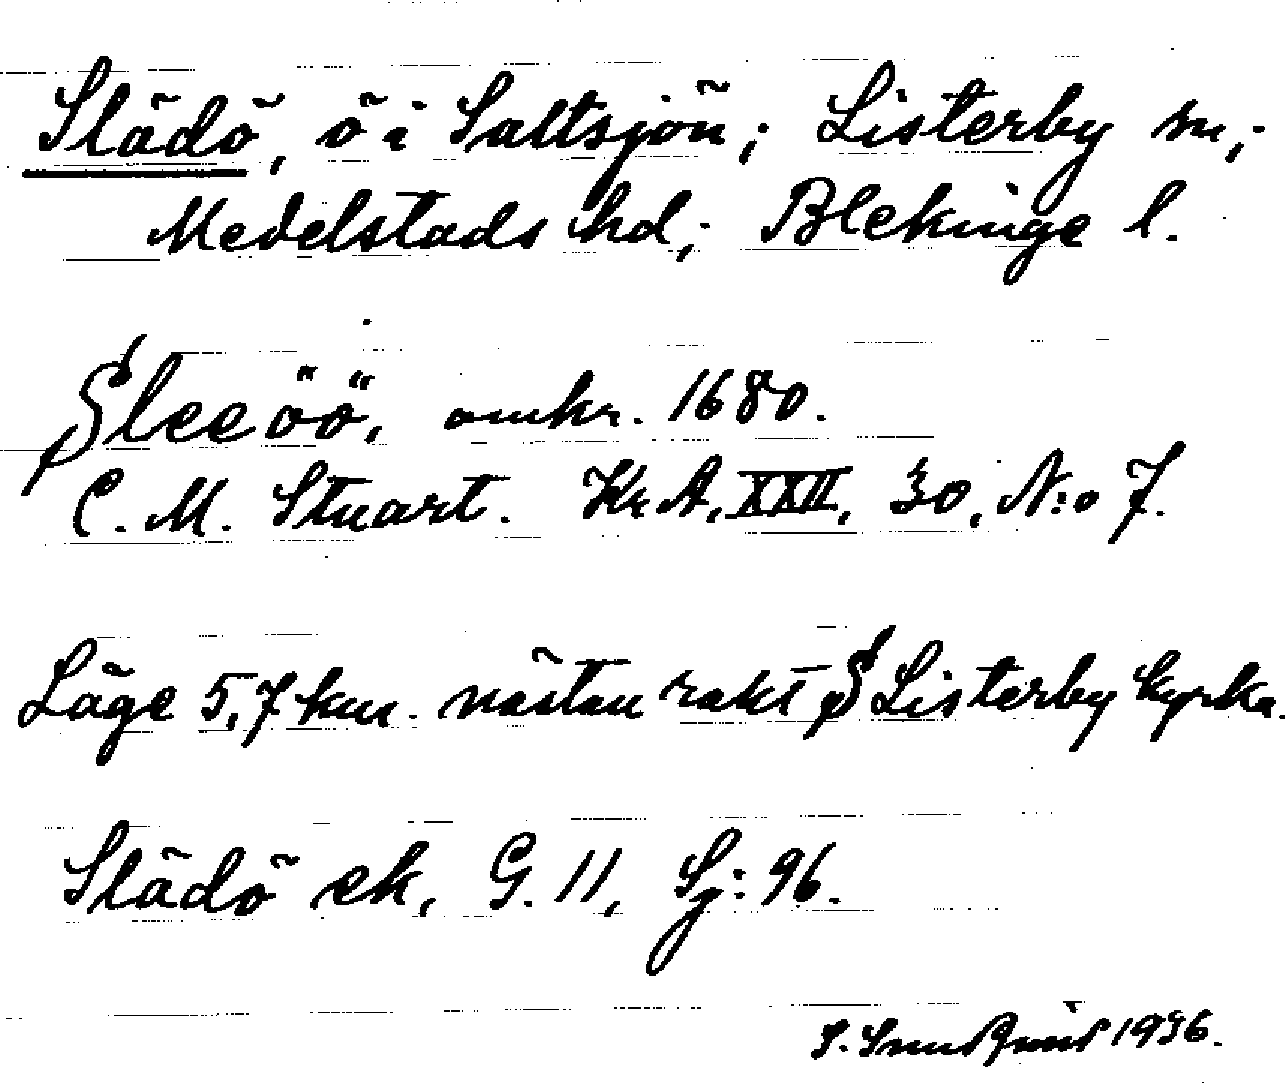 Slädö, ö i Saltsjön; Listerby sn,;
Medelstads hd,; Blekinge l.
Sleeöö, omkr. 1680.
C. M. Stuart. Kr. A, XXII, 30, N:o 7.
Läge 5,7 km. nästan rakt S Listerby kyrka.
Slädö ek, G. 11, Sj: 96.
1936.